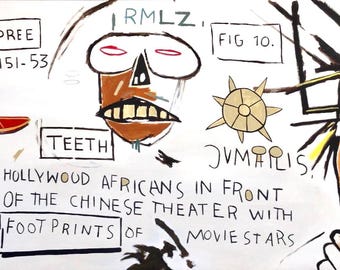 RMLZ.
PREE
151-53
FIG 10.
TEETH
HOLLYWOOD AFRICANS IN FRONT
OF THE CHINESE THEATER WITH
FOOTPRINTS OF MOVIE STARS